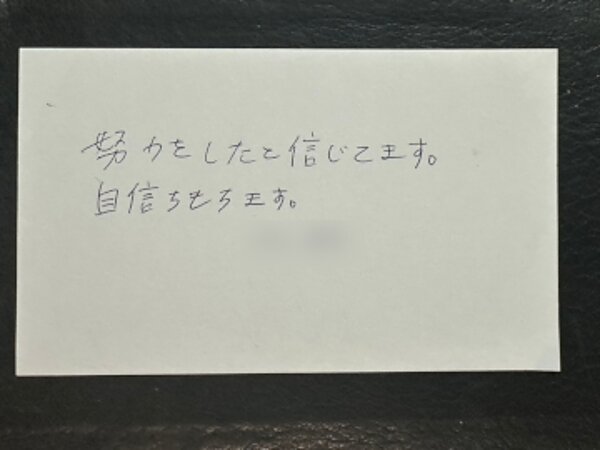 努力をしたと信じてます。
自信ちもちます。